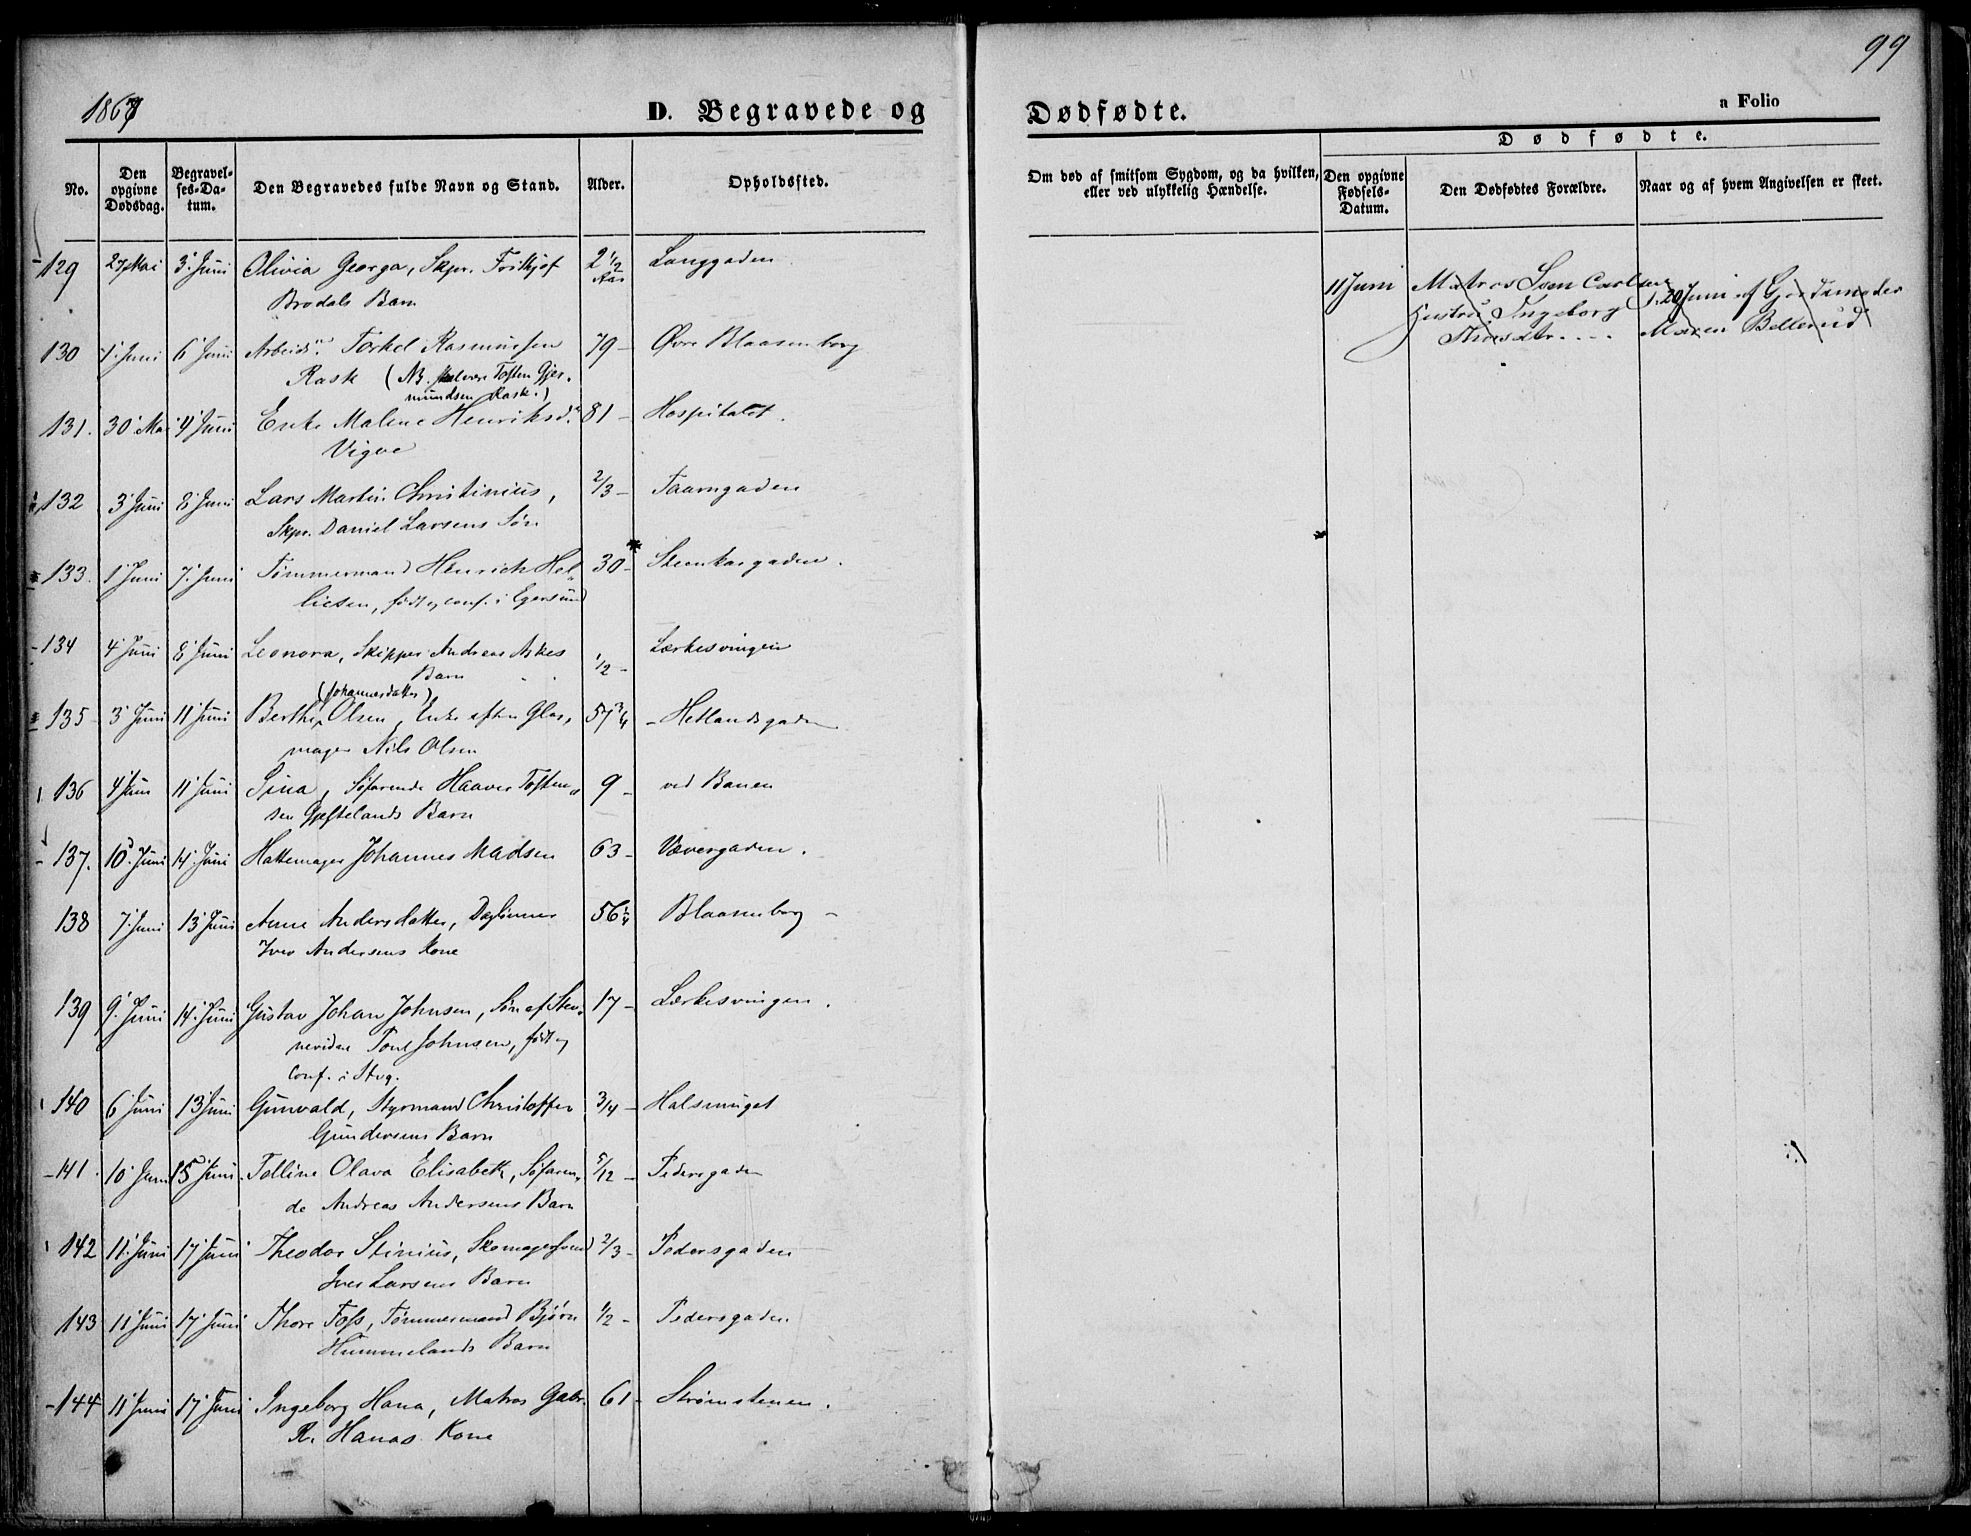 99
1867
D. Begravede og
Dødfødte.
a Folio
No.
Den opgivne Dødsdag.
Begravel-ses-Da-tum.
Den Begravedes fulde Navn og Stand.
Alder.
Opholdssted.
Om død af smitsom Sygdom, og da hvilken, eller ved ulykkelig Hændelse.
Dødfødte.
Den opgivne Fødsels-Datum.
Den Dødfødtes Forældre.
Naar og af hvem Angivelsen er skeet.
129 27 Mai 3' Juni Olivia Georga, Skpr. Frithjof 2 1/2 Aar Langgaden
Brodals Barn
130 1' Juni 6' Juni Arbeidsm. Torkel Rasmussen 79 - Øvre Blaasenborg
Rask (NB. skal være Tosten Gjer-
mundsen Rask.)
131. 30' Mai 4' Juni Enke Malene Henriksd. 81 - Hospitalet.
Vigve
132 3' Juni 8' Juni Lars Martin Christinius, 2/3 - Taarngaden
Skpr. Daniel Larsens Søn
133. 1' Juni 7' Juni Tømmermand Henrich Hel- 30 - Steenkargaden.
liesen, født og conf. i Egersund
134 4' Juni 8' Juni Leonora, Skipper Andreas Askes 1/2 - Lærkesvingen
Barn
(Johannesdatter)
135 3' Juni 11' Juni Berthe Olsen, Enke efter Glas- 57 3/4 - Hetlandsgaden
mager Nils Olsen
136 4' Juni 11' Juni Sina, Søfarende Haaver Tosten- 9 - ved Banen
sen Gjestelands Barn
137. 10' Juni 14' Juni Hattemager Johannes Madsen 63 - Vævergaden.
138 7' Juni 13' Juni Anne Andersdatter, Dagleiner 56 1/4 Blaasenborg -
Iver Andersens Kone
139 9' Juni 14' Juni Gustav Johan Johnsen, Søn af Stev- 17 - Lærkesvingen.
nevidne Poul Johnsen, født og
conf. i Stvg.
140 6' Juni 13' Juni Gunvald, Styrmand Christoffer 3/4 - Halsmuget
Gundersens Barn
141. 10' Juni 15' Juni Talline Olava Elisabeth, Søfaren- 5/12 - Pedersgaden
de Andreas Andersens Barn
142 11' Juni 17' Juni Theodor Stinius, Skomagersvend 2/3 - Pedersgaden
Iver Larsens Barn
143 11' Juni 17' Juni Thore Foss, Tømmermand Bjørn 1/2 - Pedersgaden
Hummelands Barn
144 11' Juni 17' Juni Ingeborg Hana, Matros Gabr. 61 - Strømstenen.
R. Hanas Kone
11 Juni Matros Sven Carlsen
Hustru Ingeborg
20 Juni af Gjordemoder
Maren Bellerud